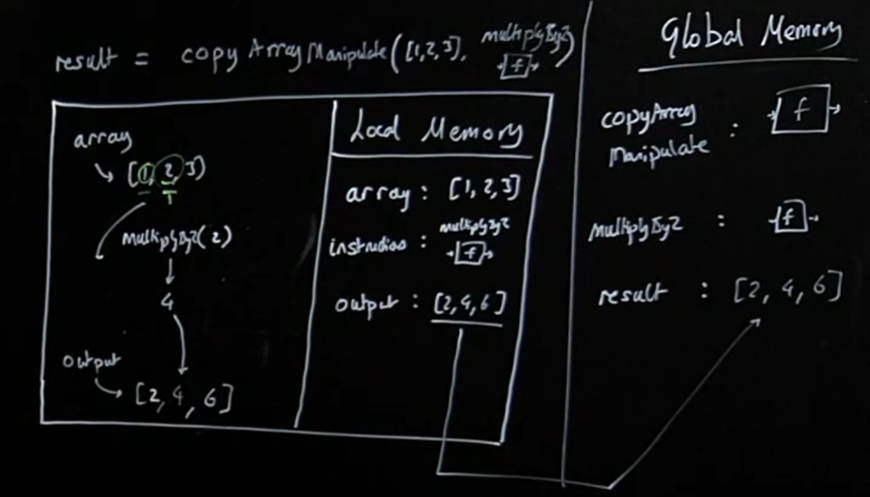 result = copyArrayManipulate([1,2,3], multiplyBy2)
f
array
[1, 2, 3]
multiplyBy2(2)
4
output
[2, 4, 6]
Local Memory
array : [1, 2, 3]
instruction : multiplyBy2
f
output : [2, 4, 6]
Global Memory
copyArray
Manipulate : f
multiplyBy2 : f
result : [2, 4, 6]